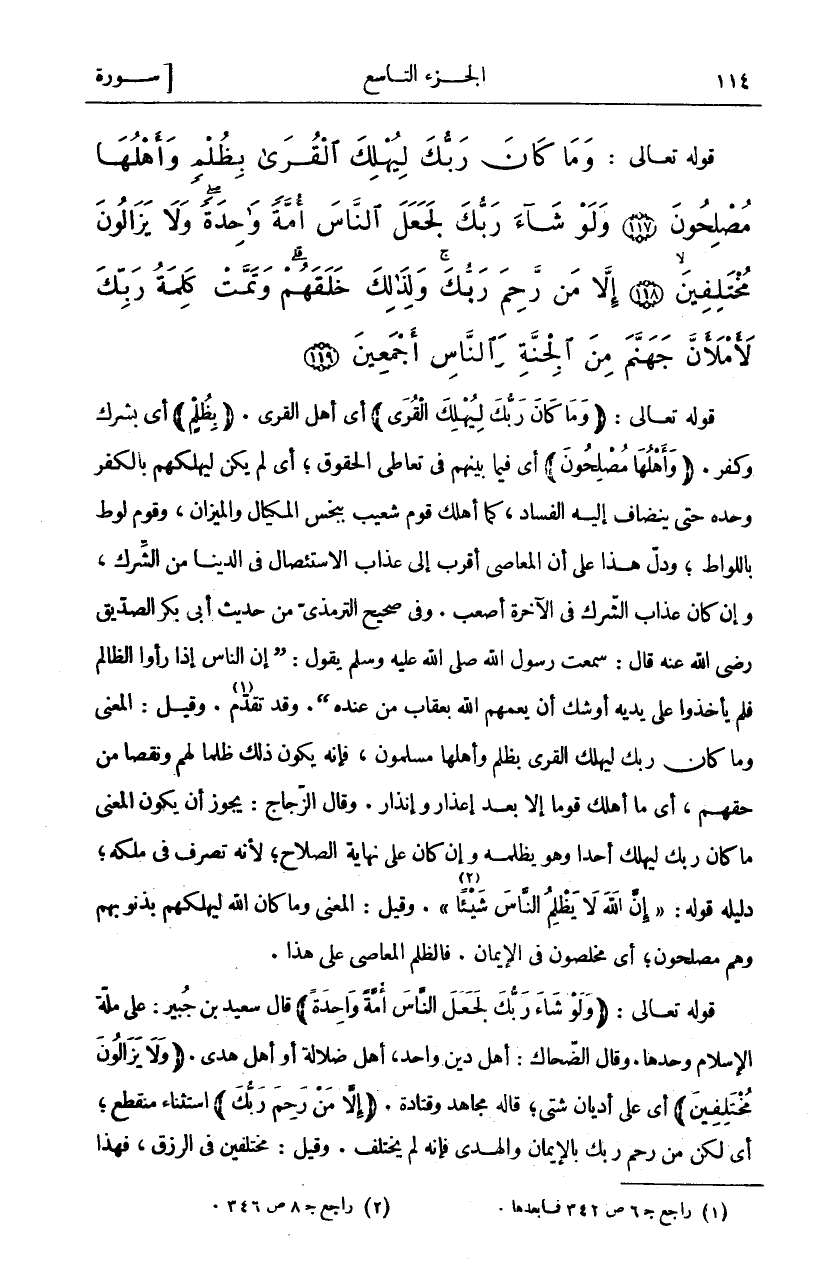 ١١٤ الجزء التاسع [ سورة
قوله تعالى : وَمَا كَانَ رَبُّكَ لِيُهْلِكَ ٱلْقُرَىٰ بِظُلْمٍ وَأَهْلُهَا
مُصْلِحُونَ ﴿١١٧﴾ وَلَوْ شَآءَ رَبُّكَ لَجَعَلَ ٱلنَّاسَ أُمَّةً وَٰحِدَةً ۖ وَلَا يَزَالُونَ
مُخْتَلِفِينَ ﴿١١٨﴾ إِلَّا مَن رَّحِمَ رَبُّكَ ۚ وَلِذَٰلِكَ خَلَقَهُمْ ۗ وَتَمَّتْ كَلِمَةُ رَبِّكَ
لَأَمْلَأَنَّ جَهَنَّمَ مِنَ ٱلْجِنَّةِ وَٱلنَّاسِ أَجْمَعِينَ ﴿١١٩﴾
قوله تعالى : ﴿ وَمَا كَانَ رَبُّكَ لِيُهْلِكَ الْقُرَى ﴾ أى أهل القرى . ﴿ بِظُلْمٍ ﴾ أى بشرك
وكفر . ﴿ وَأَهْلُهَا مُصْلِحُونَ ﴾ أى فيما بينهم فى تعاطى الحقوق ؛ أى لم يكن ليهلكهم بالكفر
وحده حتى ينضاف إليه الفساد ، كما أهلك قوم شعيب ببخس المكيال والميزان ، وقوم لوط
باللواط ؛ ودلّ هذا على أن المعاصى أقرب إلى عذاب الاستئصال فى الدينا من الشِّرك ،
و إن كان عذاب الشّرك فى الآخرة أصعب . وفى صحيح الترمذىّ من حديث أبى بكر الصدّيق
رضى الله عنه قال : سمعت رسول الله صلى الله عليه وسلم يقول : ” إن الناس إذا رأوا الظالم
فلم يأخذوا على يديه أوشك أن يعمهم الله بعقاب من عنده “ . وقد تقدّم (١) . وقيل : المعنى
وما كان ربك ليهلك القرى بظلم وأهلها مسلمون ، فإنه يكون ذلك ظلما لهم ونقصا من
حقهم ، أى ما أهلك قوما إلا بعد إعذار و إنذار . وقال الزّجاج : يجوز أن يكون المعنى
ما كان ربك ليهلك أحدا وهو يظلمه و إن كان على نهاية الصلاح ؛ لأنه تصرف فى ملكه ؛
دليله قوله : « إِنَّ اللهَ لَا يَظْلِمُ النَّاسَ شَيْئًا (٢) » . وقيل : المعنى وما كان الله ليهلكهم بذنوبهم
وهم مصلحون ؛ أى مخلصون فى الإيمان . فالظلم المعاصى على هذا .
قوله تعالى : ﴿ وَلَوْ شَاءَ رَبُّكَ لَجَعَلَ النَّاسَ أُمَّةً وَاحِدَةً ﴾ قال سعيد بن جُبير : على ملّة
الإسلام وحدها . وقال الضّحاك : أهل دين واحد، أهل ضلالة أو أهل هدى . ﴿ وَلَا يَزَالُونَ
مُخْتَلِفِينَ ﴾ أى على أديان شتى ؛ قاله مجاهد وقتادة . ﴿ إِلَّا مَنْ رَحِمَ رَبُّكَ ﴾ استثناء منقطع ؛
أى لكن من رحم ربك بالإيمان والهدى فإنه لم يختلف . وقيل : مختلفين فى الرزق ، فهذا
(١) راجع جـ ٦ ص ٣٤٢ فما بعدها . (٢) راجع جـ ٨ ص ٣٤٦ .